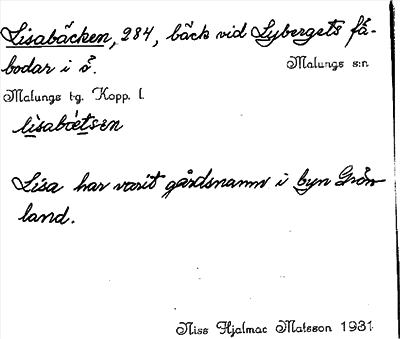 Lisabäcken, 284, bäck vid Lybergets få-
bodar i ö. Malungs s:n
Malungs tg. Kopp. l.
lisabö́etsen
Lisa har varit gårdsnamn i byn Grön
land.
Niss Hjalmar Matsson 1931